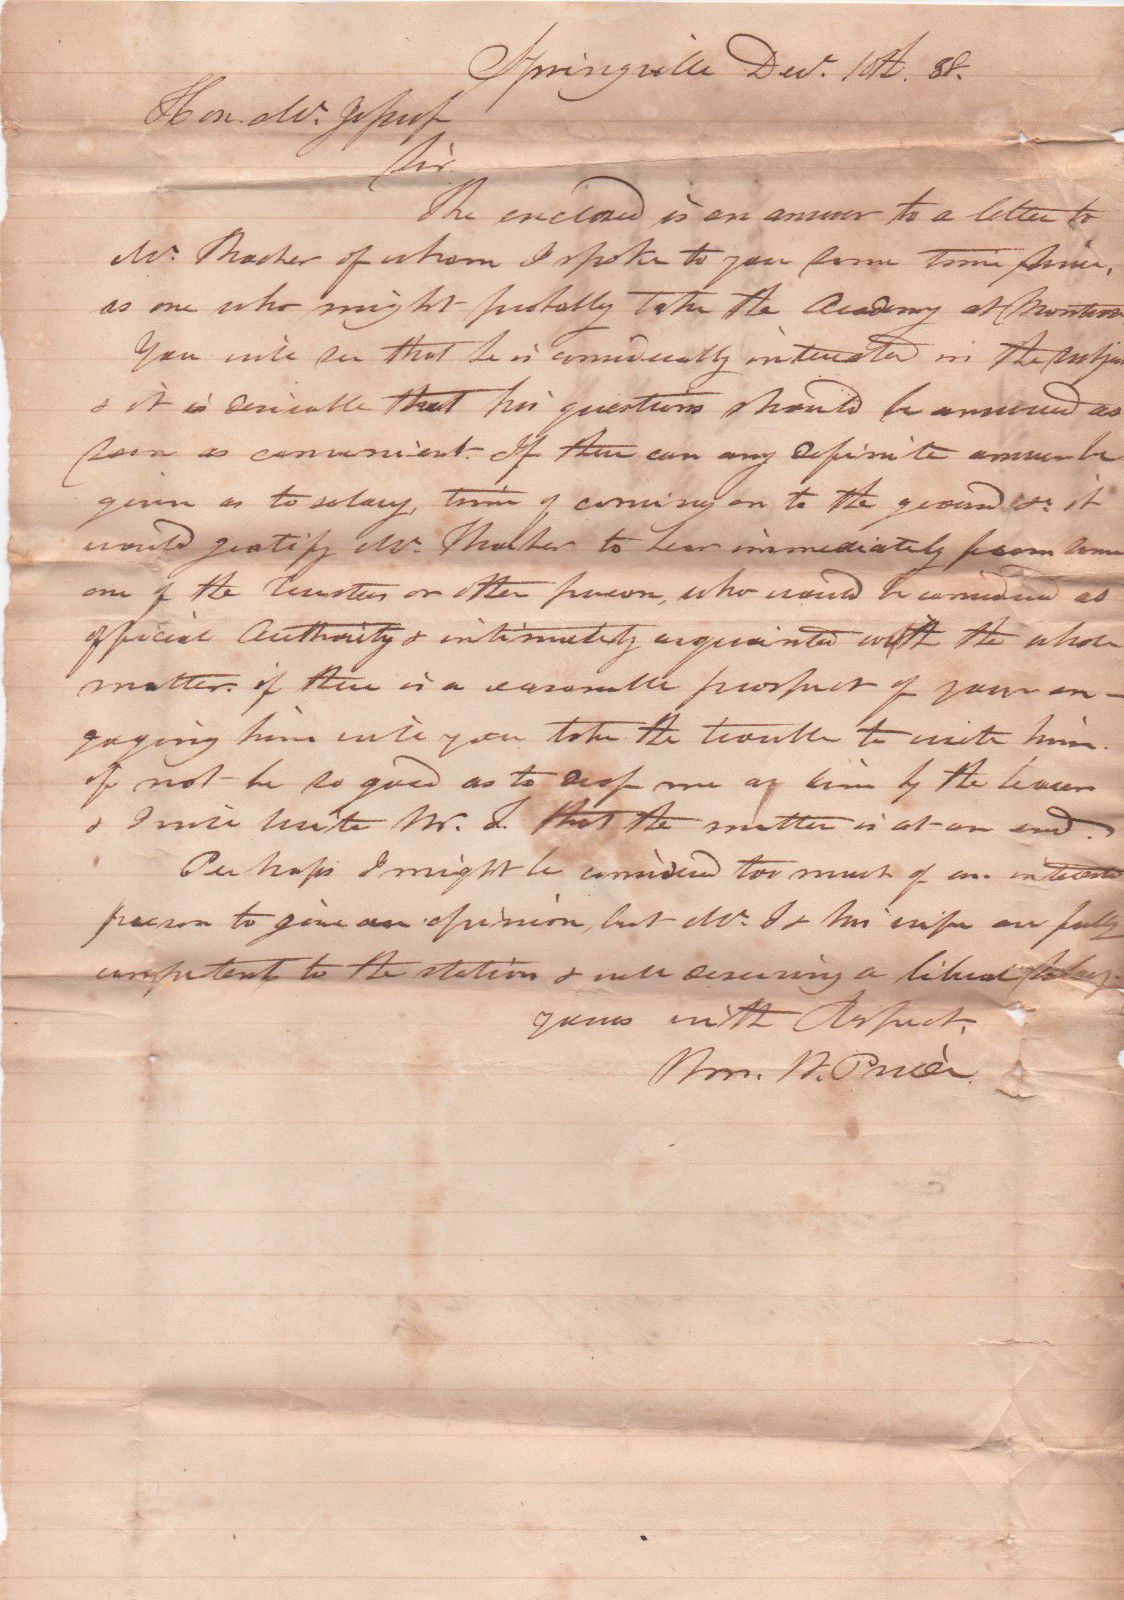 Springville Decr. 10th. 38.
Hon. Mr. Jessup
Sir.
The enclosed is an answer to a letter to
Mr. Thacher of whom I spoke to you some time since,
as one who might probably take the Academy at Montrose
You will see that he is considerably interested in the subject
& it is desirable that his questions should be answered as
soon as convenient. If there can any definite answer be
given as to salary, time of coming on to the ground &c it
would gratify Mr. Thacher to hear immediately from some
one of the Trustees or other person, who would be considered as
official Authority & intimately acquainted with the whole
matter. if there is a reasonable prospect of your en-
gaging him will you take the trouble to write him.
if not be so good as to drop me a line by the bearer
& I will write Mr. T. that the matter is at an end.
Perhaps I might be considered too much of an interested
person to give an opinion, but Mr. T & his wife are fully
competent to the station & well deserving a liberal salary.
yours with Respect,
Wm. W.